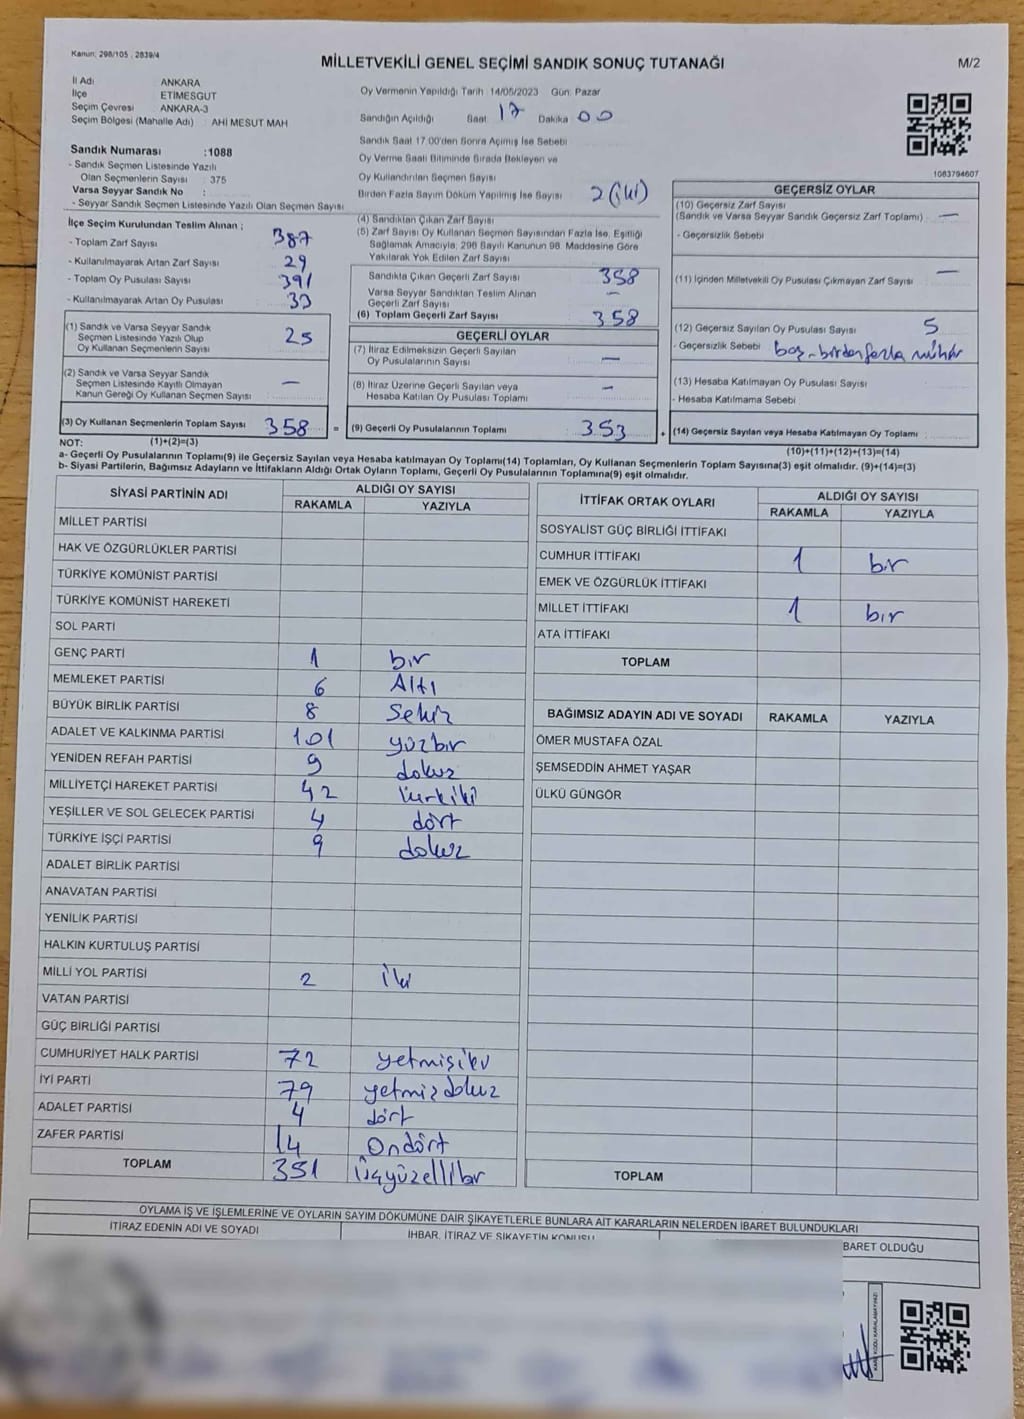 Kanun: 298/105 , 2839/4
MİLLETVEKİLİ GENEL SEÇİMİ SANDIK SONUÇ TUTANAĞI
M/2
İl Adı ANKARA
İlçe ETİMESGUT
Seçim Çevresi ANKARA-3
Seçim Bölgesi (Mahalle Adı) : AHİ MESUT MAH
Sandık Numarası :1088
- Sandık Seçmen Listesinde Yazılı
Olan Seçmenlerin Sayısı : 375
Varsa Seyyar Sandık No :
- Seyyar Sandık Seçmen Listesinde Yazılı Olan Seçmen Sayısı
Oy Vermenin Yapıldığı Tarih :14/05/2023 Gün: Pazar
Sandığın Açıldığı Saat 17 Dakika 00
Sandık Saat 17.00'den Sonra Açılmış İse Sebebi
Oy Verme Saati Bitiminde Sırada Bekleyen ve
Oy Kullandırılan Seçmen Sayısı
Birden Fazla Sayım Döküm Yapılmış İse Sayısı 2 (iki)
1083794607
İlçe Seçim Kurulundan Teslim Alınan :
- Toplam Zarf Sayısı 387
- Kullanılmayarak Artan Zarf Sayısı 29
- Toplam Oy Pusulası Sayısı 391
- Kullanılmayarak Artan Oy Pusulası 33
(1) Sandık ve Varsa Seyyar Sandık
Seçmen Listesinde Yazılı Olup
Oy Kullanan Seçmenlerin Sayısı 25
(2) Sandık ve Varsa Seyyar Sandık
Seçmen Listesinde Kayıtlı Olmayan
Kanun Gereği Oy Kullanan Seçmen Sayısı : —
(3) Oy Kullanan Seçmenlerin Toplam Sayısı 358 =
(4) Sandıktan Çıkan Zarf Sayısı
(5) Zarf Sayısı Oy Kullanan Seçmen Sayısından Fazla İse, Eşitliği
Sağlamak Amacıyla, 298 Sayılı Kanunun 98. Maddesine Göre
Yakılarak Yok Edilen Zarf Sayısı
Sandıkta Çıkan Geçerli Zarf Sayısı 358
Varsa Seyyar Sandıktan Teslim Alınan
Geçerli Zarf Sayısı —
(6) Toplam Geçerli Zarf Sayısı 358
GEÇERLİ OYLAR
(7) İtiraz Edilmeksizin Geçerli Sayılan
Oy Pusulalarının Sayısı —
(8) İtiraz Üzerine Geçerli Sayılan veya
Hesaba Katılan Oy Pusulası Toplamı —
(9) Geçerli Oy Pusulalarının Toplamı 353 +
GEÇERSİZ OYLAR
(10) Geçersiz Zarf Sayısı
(Sandık ve Varsa Seyyar Sandık Geçersiz Zarf Toplamı) : —
- Geçersizlik Sebebi
(11) İçinden Milletvekili Oy Pusulası Çıkmayan Zarf Sayısı —
(12) Geçersiz Sayılan Oy Pusulası Sayısı 5
- Geçersizlik Sebebi boş-birden fazla mühür
(13) Hesaba Katılmayan Oy Pusulası Sayısı
- Hesaba Katılmama Sebebi
(14) Geçersiz Sayılan veya Hesaba Katılmayan Oy Toplamı
NOT: (1)+(2)=(3) (10)+(11)+(12)+(13)=(14)
a- Geçerli Oy Pusulalarının Toplamı(9) ile Geçersiz Sayılan veya Hesaba katılmayan Oy Toplamı(14) Toplamları, Oy Kullanan Seçmenlerin Toplam Sayısına(3) eşit olmalıdır. (9)+(14)=(3)
b- Siyasi Partilerin, Bağımsız Adayların ve İttifakların Aldığı Ortak Oyların Toplamı, Geçerli Oy Pusulalarının Toplamına(9) eşit olmalıdır.
SİYASİ PARTİNİN ADI ALDIĞI OY SAYISI
RAKAMLA YAZIYLA
MİLLET PARTİSİ
HAK VE ÖZGÜRLÜKLER PARTİSİ
TÜRKİYE KOMÜNİST PARTİSİ
TÜRKİYE KOMÜNİST HAREKETİ
SOL PARTİ
GENÇ PARTİ 1 bir
MEMLEKET PARTİSİ 6 Altı
BÜYÜK BİRLİK PARTİSİ 8 Sekiz
ADALET VE KALKINMA PARTİSİ 101 yüzbir
YENİDEN REFAH PARTİSİ 9 dokuz
MİLLİYETÇİ HAREKET PARTİSİ 42 kırkiki
YEŞİLLER VE SOL GELECEK PARTİSİ 4 dört
TÜRKİYE İŞÇİ PARTİSİ 9 dokuz
ADALET BİRLİK PARTİSİ
ANAVATAN PARTİSİ
YENİLİK PARTİSİ
HALKIN KURTULUŞ PARTİSİ
MİLLİ YOL PARTİSİ 2 iki
VATAN PARTİSİ
GÜÇ BİRLİĞİ PARTİSİ
CUMHURİYET HALK PARTİSİ 72 yetmişiki
İYİ PARTİ 79 yetmişdokuz
ADALET PARTİSİ 4 dört
ZAFER PARTİSİ 14 Ondört
TOPLAM 351 Üçyüzellibir
İTTİFAK ORTAK OYLARI ALDIĞI OY SAYISI
RAKAMLA YAZIYLA
SOSYALİST GÜÇ BİRLİĞİ İTTİFAKI
CUMHUR İTTİFAKI 1 bir
EMEK VE ÖZGÜRLÜK İTTİFAKI
MİLLET İTTİFAKI 1 bir
ATA İTTİFAKI
TOPLAM
BAĞIMSIZ ADAYIN ADI VE SOYADI RAKAMLA YAZIYLA
ÖMER MUSTAFA ÖZAL
ŞEMSEDDİN AHMET YAŞAR
ÜLKÜ GÜNGÖR
TOPLAM
OYLAMA İŞ VE İŞLEMLERİNE VE OYLARIN SAYIM DÖKÜMÜNE DAİR ŞİKAYETLERLE BUNLARA AİT KARARLARIN NELERDEN İBARET BULUNDUKLARI
İTİRAZ EDENİN ADI VE SOYADI
İHBAR, İTİRAZ VE ŞİKAYETİN KONUSU
BARET OLDUĞU
KARE KODU KARALAMAYINIZ!